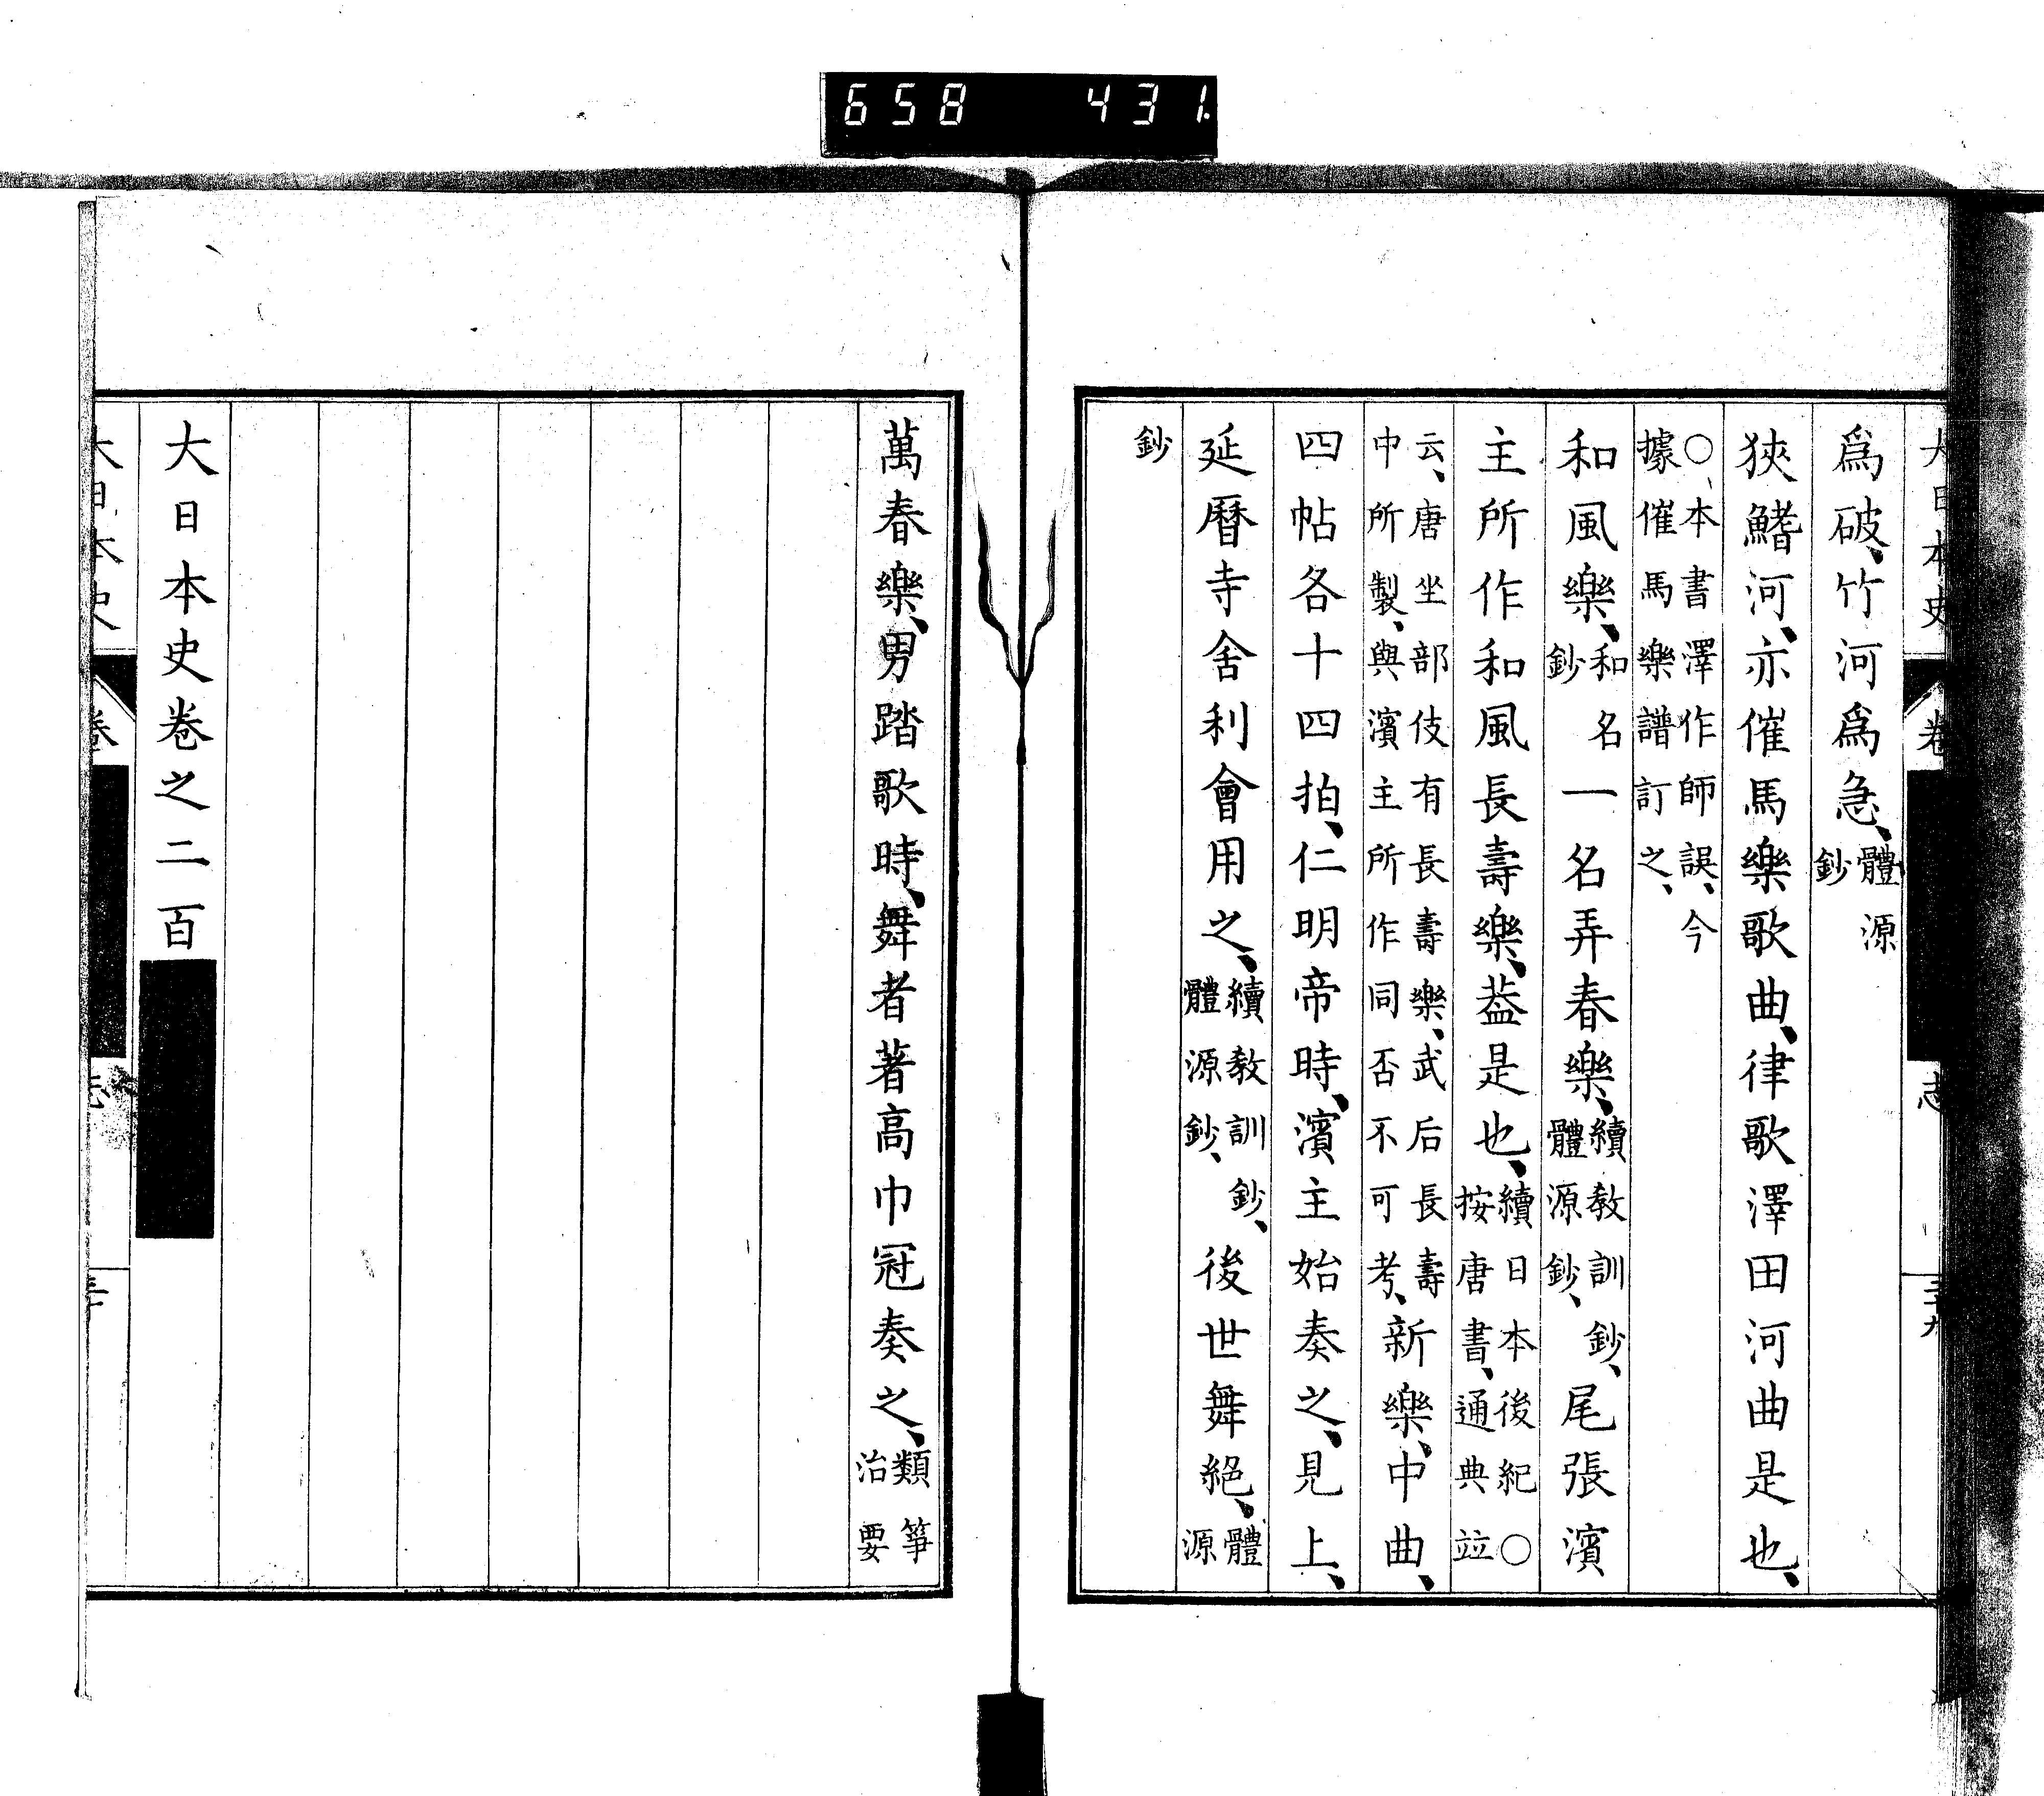 658 431.
大日本史 卷 志 三十九
爲破、竹河爲急、體源鈔
狹鰭河、亦催馬樂歌曲、律歌澤田河曲是也、
○本書澤作師誤、今據催馬樂譜訂之、
和風樂、和名鈔一名弄春樂、續敎訓鈔、體源鈔、尾張濱
主所作和風長壽樂、葢是也、續日本後紀○按唐書、通典竝
云、唐坐部伎有長壽樂、武后長壽中所製、與濱主所作同否不可考、新樂、中曲、
四帖各十四拍、仁明帝時、濱主始奏之、見上、
延曆寺舍利會用之、續敎訓鈔、體源鈔、後世舞絕、體源
鈔
萬春樂、男踏歌時、舞者著高巾冠奏之、類箏治要
大日本史卷之二百
大日本史 卷 志